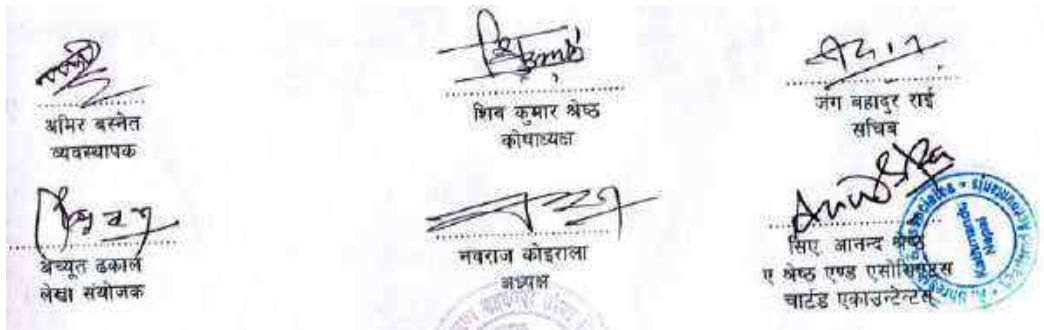 अमिर बस्नेत
व्यवस्थापक
शिव कुमार श्रेष्ठ
कोषाध्यक्ष
जंग बहादुर राई
सचिव
अच्यूत ढकाल
लेखा संयोजक
नवराज कोइराला
अध्यक्ष
सिए. आनन्द श्रेष्ठ
ए श्रेष्ठ एण्ड एसोसिएट्स
चार्टड एकाउन्टेन्टस्
Kathmandu
Nepal